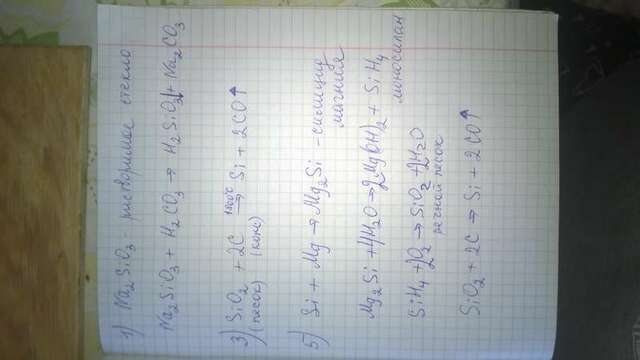 1) Na2SiO3 - растворимое стекло
Na2SiO3 + H2CO3 → H2SiO3↓ + Na2CO3
1500°C
3) SiO2 + 2C → Si + 2CO↑
(песок) (кокс)
5) Si + Mg → Mg2Si - силицид
магния
Mg2Si + 4H2O → 2Mg(OH)2 + SiH4
моносилан
SiH4 + 2O2 → SiO2 + 2H2O
речной песок
SiO2 + 2C → Si + 2CO↑